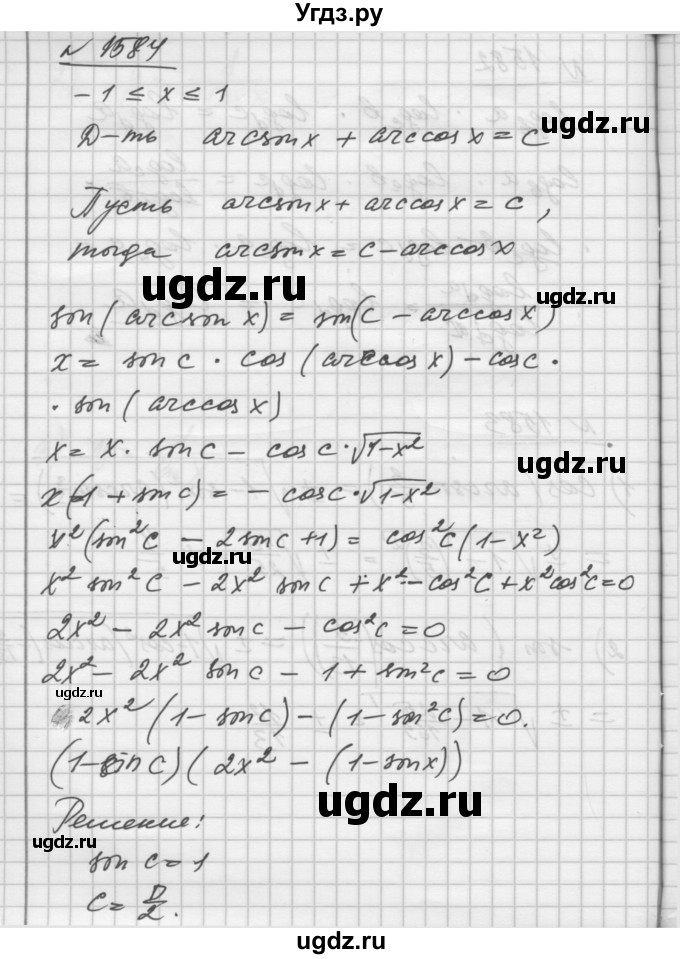 Угдз.ру
№ 1584
-1 ≤ x ≤ 1
Д-ть arcsin x + arccos x = C
Пусть arcsin x + arccos x = c,
тогда arcsin x = c - arccos x
ugdz.ru
ugdz.ru
sin (arcsin x) = sin(C - arccos x)
x = sin c · cos (arccos x) - cos c ·
· sin (arccos x)
x = x · sin c - cos c · √1-x²
ugdz.ru
x(1 + sin c) = - cos c · √1-x²
x²(sin²c - 2 sin c + 1) = cos²c (1 - x²)
ugdz.ru
x² sin²c - 2x² sin c + x² - cos²c + x² cos²c = 0
2x² - 2x² sin c - cos²c = 0
2x² - 2x² sin c - 1 + sin²c = 0
ugdz.ru
2x² (1 - sin c) - (1 - sin²c) = 0.
(1 - sin c) (2x² - (1 - sin x))
ugdz.ru
Решение:
ugdz.ru
sin c = 1
c = π/2.
ugdz.ru
ugdz.ru